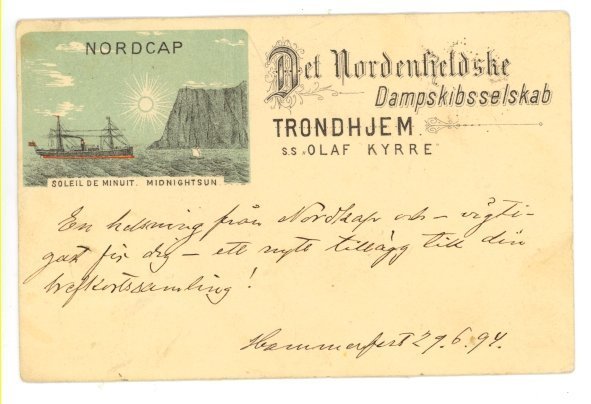 NORDCAP
SOLEIL DE MINUIT. MIDNIGHTSUN
Det Nordenfjeldske
Dampskibsselskab
TRONDHJEM.
S.S. „OLAF KYRRE”
En helsning från Nordkap och – vigti-
gast för dig – ett nytt tillägg till din
brefkortssamling!
Hammerfest 29.6.94.